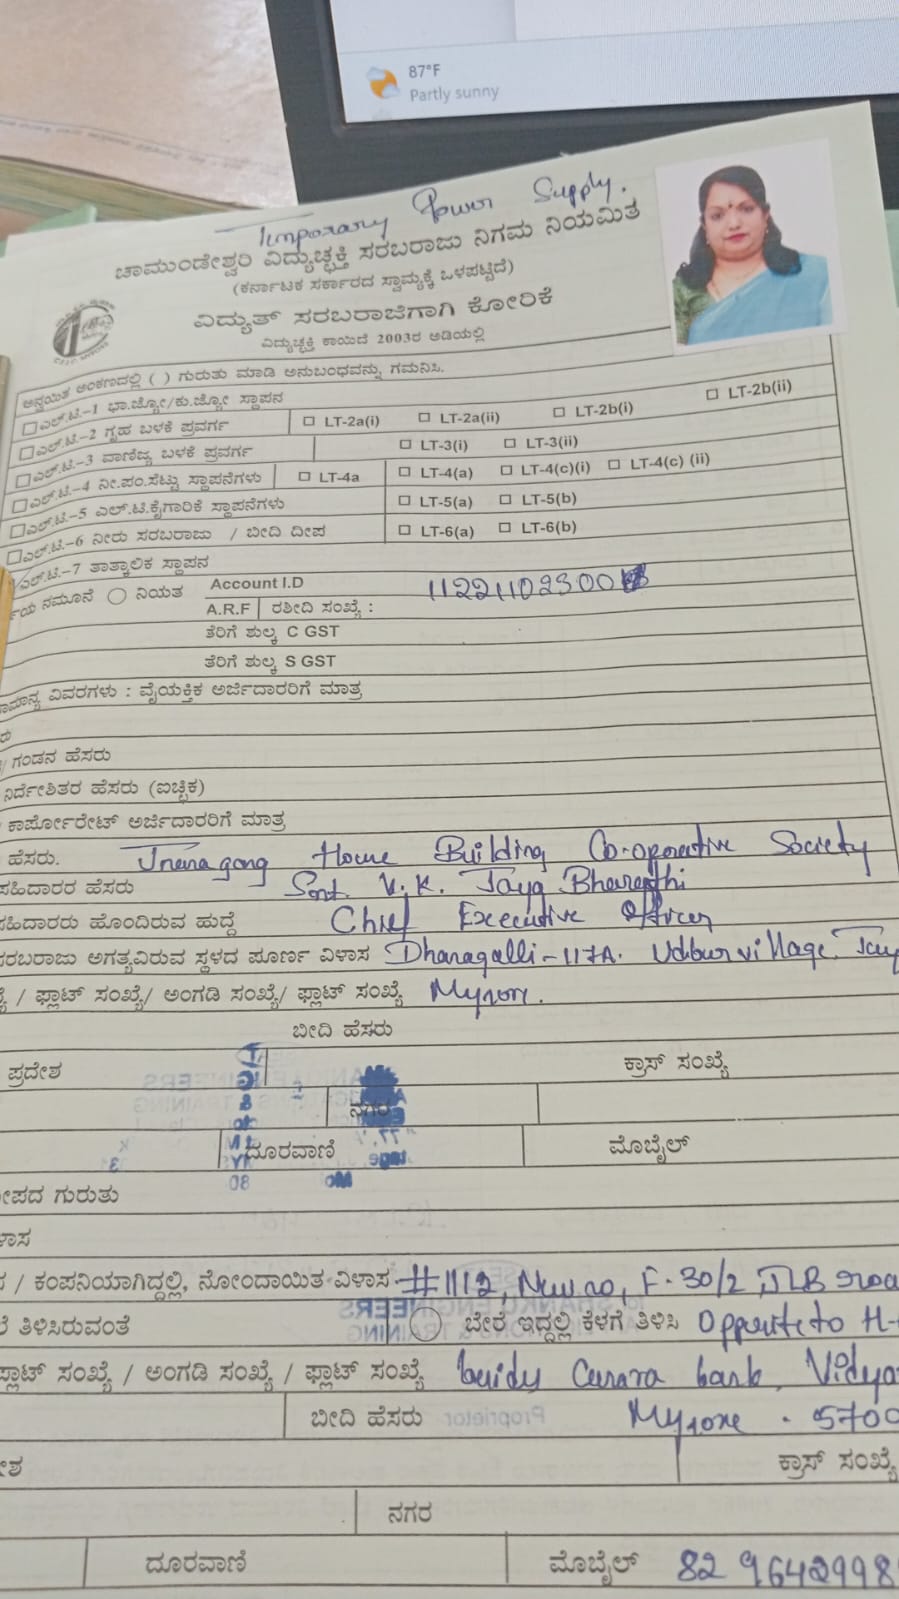 87°F
Partly sunny
Temporary Power Supply.
ಚಾಮುಂಡೇಶ್ವರಿ ವಿದ್ಯುಚ್ಛಕ್ತಿ ಸರಬರಾಜು ನಿಗಮ ನಿಯಮಿತ
(ಕರ್ನಾಟಕ ಸರ್ಕಾರದ ಸ್ವಾಮ್ಯಕ್ಕೆ ಒಳಪಟ್ಟಿದೆ)
ವಿದ್ಯುತ್ ಸರಬರಾಜಿಗಾಗಿ ಕೋರಿಕೆ
ವಿದ್ಯುಚ್ಛಕ್ತಿ ಕಾಯಿದೆ 2003ರ ಅಡಿಯಲ್ಲಿ
ಅನ್ವಯಿತ ಅಂಕಣದಲ್ಲಿ ( ) ಗುರುತು ಮಾಡಿ ಅನುಬಂಧವನ್ನು ಗಮನಿಸಿ.
ಎಲ್.ಟಿ.-1 ಭಾ.ಜ್ಯೋ/ಕು.ಜ್ಯೋ ಸ್ಥಾಪನ
ಎಲ್.ಟಿ.-2 ಗೃಹ ಬಳಕೆ ಪ್ರವರ್ಗ LT-2a(i) LT-2a(ii) LT-2b(i) LT-2b(ii)
ಎಲ್.ಟಿ.-3 ವಾಣಿಜ್ಯ ಬಳಕೆ ಪ್ರವರ್ಗ LT-3(i) LT-3(ii)
ಎಲ್.ಟಿ.-4 ನೀ.ಪಂ.ಸೆಟ್ಟು ಸ್ಥಾಪನೆಗಳು LT-4a LT-4(a) LT-4(c)(i) LT-4(c) (ii)
ಎಲ್.ಟಿ.-5 ಎಲ್.ಟಿ.ಕೈಗಾರಿಕೆ ಸ್ಥಾಪನೆಗಳು LT-5(a) LT-5(b)
ಎಲ್.ಟಿ.-6 ನೀರು ಸರಬರಾಜು / ಬೀದಿ ದೀಪ LT-6(a) LT-6(b)
ಎಲ್.ಟಿ.-7 ತಾತ್ಕಾಲಿಕ ಸ್ಥಾಪನ
ನಮೂನೆ ನಿಯತ Account I.D
A.R.F ರಶೀದಿ ಸಂಖ್ಯೆ :
ತೆರಿಗೆ ಶುಲ್ಕ C GST
ತೆರಿಗೆ ಶುಲ್ಕ S GST
ವಿವರಗಳು : ವೈಯಕ್ತಿಕ ಅರ್ಜಿದಾರರಿಗೆ ಮಾತ್ರ
ಗಂಡನ ಹೆಸರು
ನಿರ್ದೇಶಿತರ ಹೆಸರು (ಐಚ್ಛಿಕ)
ಕಾರ್ಪೋರೇಟ್ ಅರ್ಜಿದಾರರಿಗೆ ಮಾತ್ರ
ಹೆಸರು. House Building Co-operative Society
ಸಹಿದಾರರ ಹೆಸರು Smt. V.K. Jaya Bharathi
ಸಹಿದಾರರು ಹೊಂದಿರುವ ಹುದ್ದೆ Chief Executive Officer
ಅಗತ್ಯವಿರುವ ಸ್ಥಳದ ಪೂರ್ಣ ವಿಳಾಸ Dhanagalli-117A. Udbur village.
/ ಫ್ಲಾಟ್ ಸಂಖ್ಯೆ/ ಅಂಗಡಿ ಸಂಖ್ಯೆ/ ಫ್ಲಾಟ್ ಸಂಖ್ಯೆ Mysore.
ಬೀದಿ ಹೆಸರು
ಪ್ರದೇಶ ಕ್ರಾಸ್ ಸಂಖ್ಯೆ
ನಗರ
ದೂರವಾಣಿ ಮೊಬೈಲ್
ಗುರುತು
/ ಕಂಪನಿಯಾಗಿದ್ದಲ್ಲಿ, ನೋಂದಾಯಿತ ವಿಳಾಸ #1112, F-30/2, JLB
ತಿಳಿಸಿರುವಂತೆ ಬೇರೆ ಇದ್ದಲ್ಲಿ ಕೆಳಗೆ ತಿಳಿಸಿ Opposite to
ಪ್ಲಾಟ್ ಸಂಖ್ಯೆ / ಅಂಗಡಿ ಸಂಖ್ಯೆ / ಫ್ಲಾಟ್ ಸಂಖ್ಯೆ Canara bank,
ಬೀದಿ ಹೆಸರು Mysore.
ಕ್ರಾಸ್ ಸಂಖ್ಯೆ
ನಗರ
ದೂರವಾಣಿ ಮೊಬೈಲ್